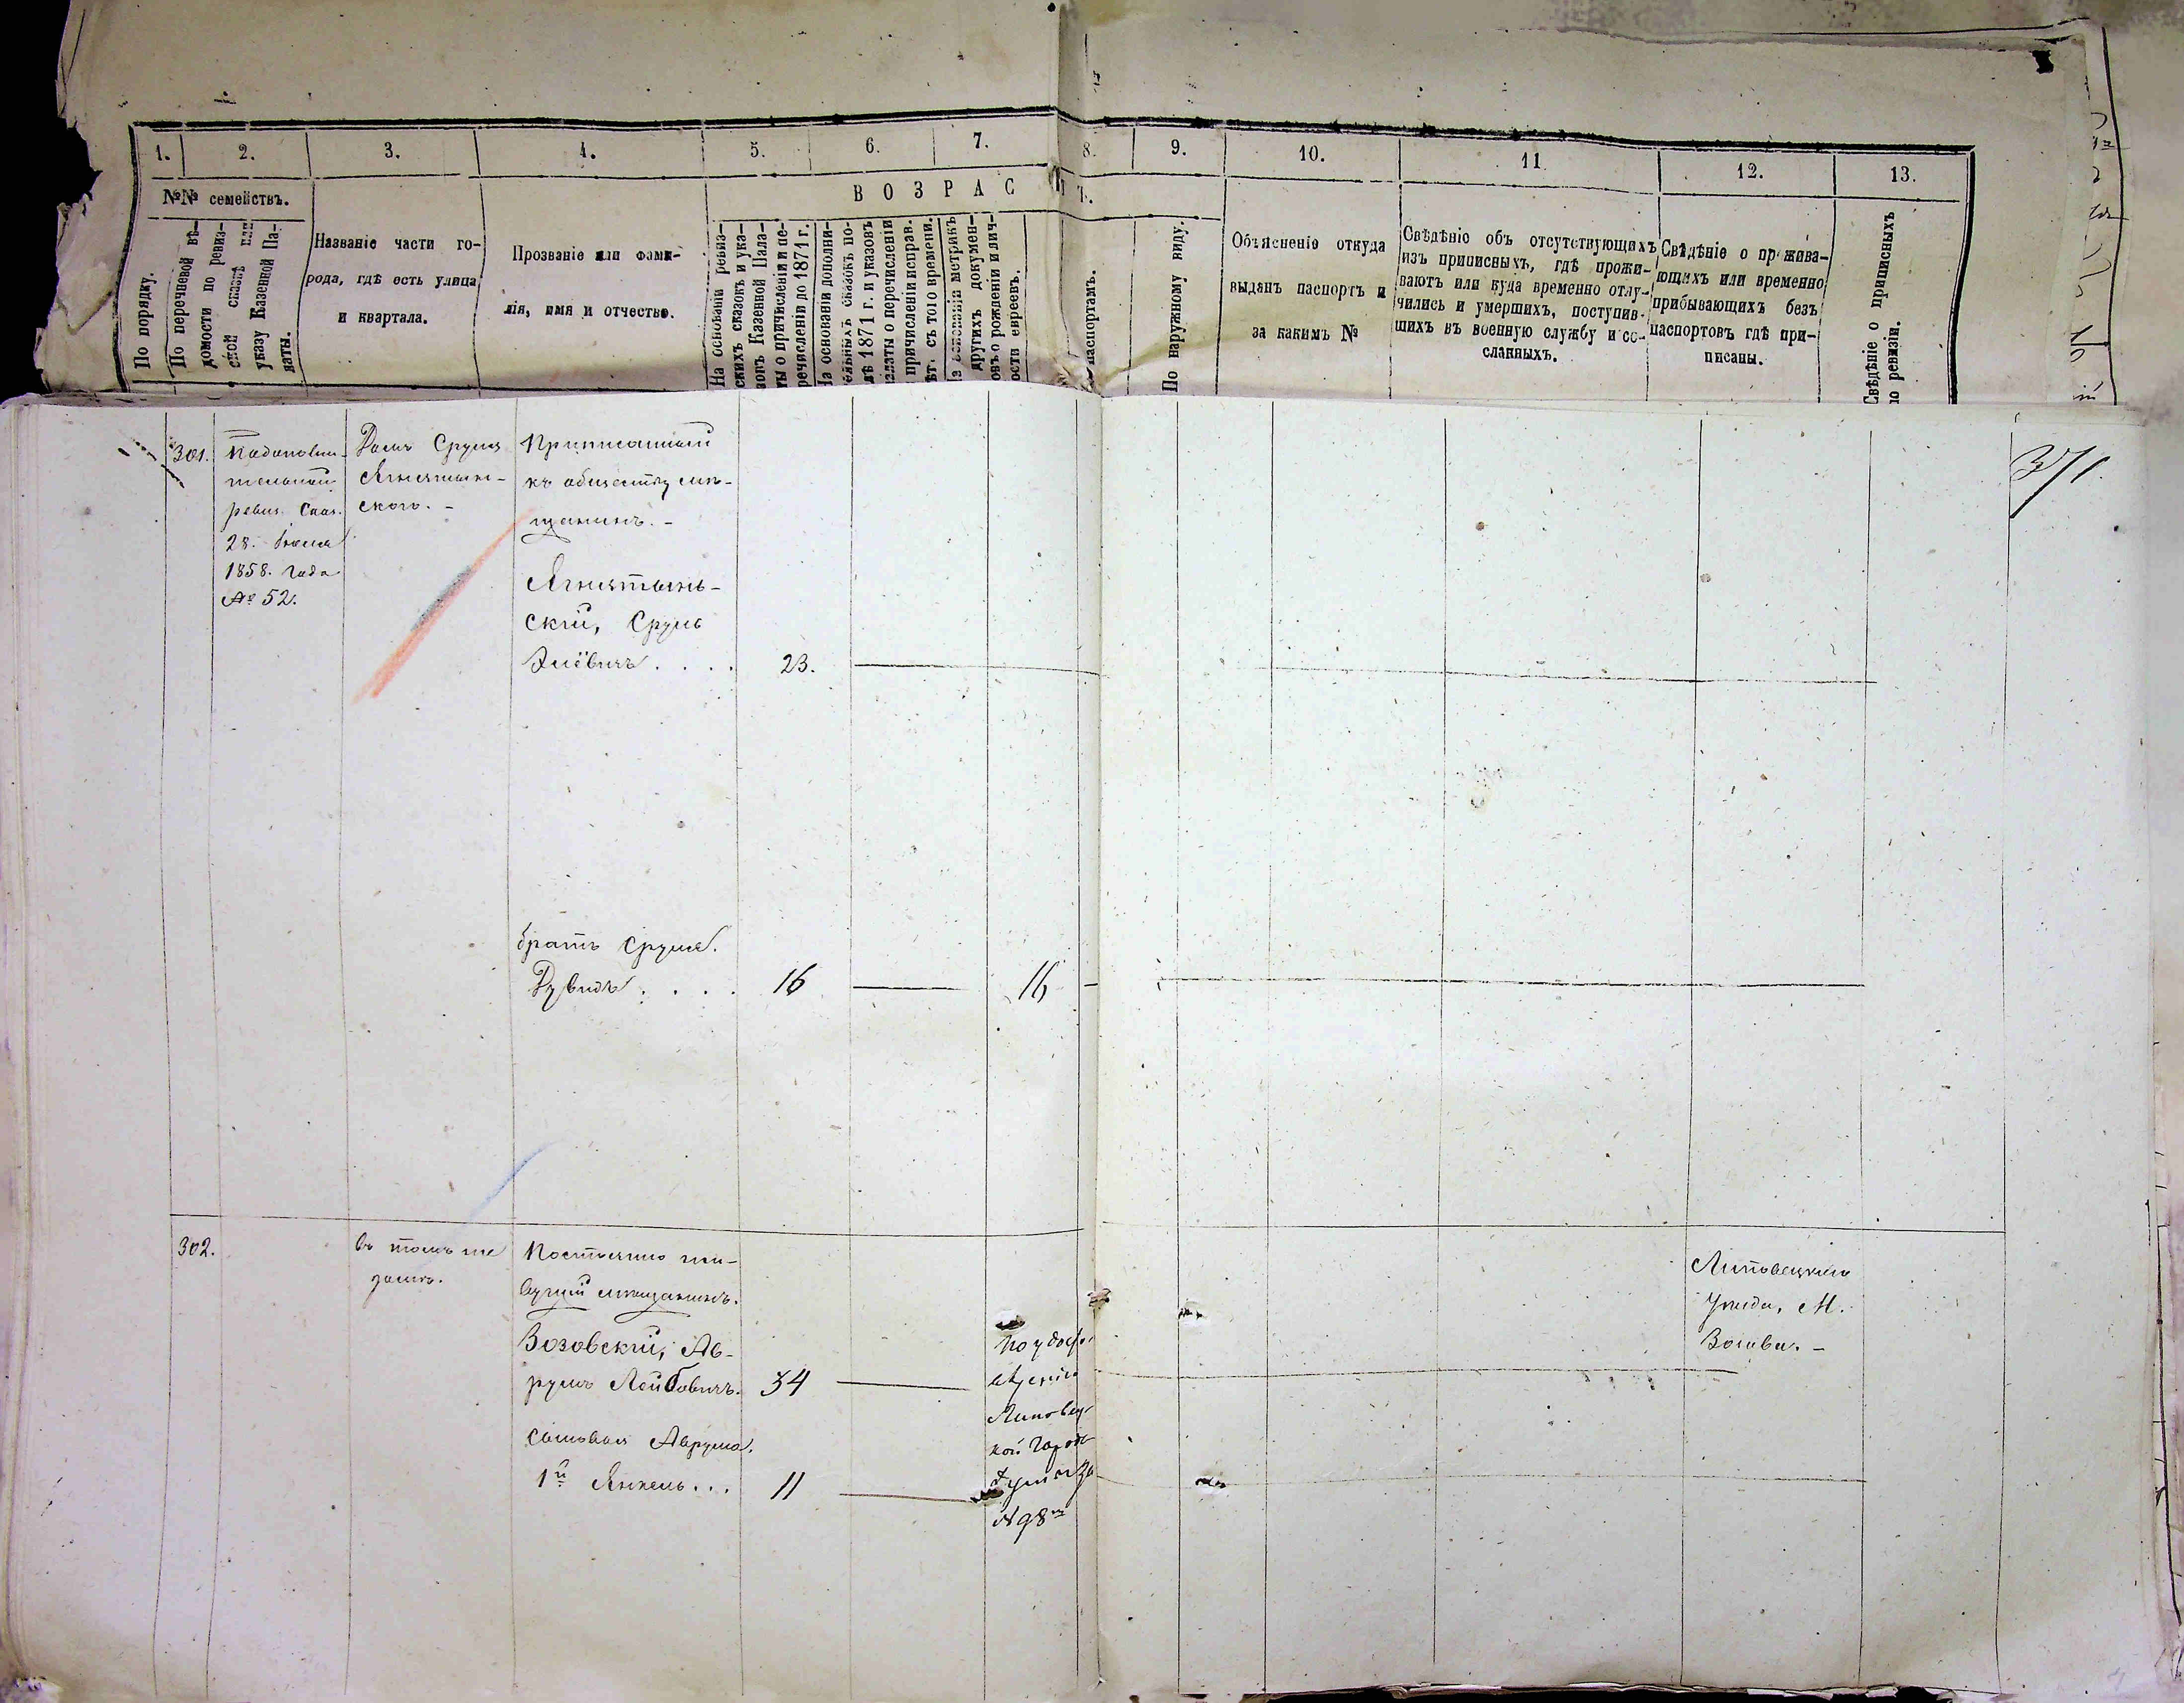 1.
2.
3.
4.
5.
6.
7.
8.
9.
10.
11
12.
13.
№№ семействъ.
В О З Р А С Т Ъ.
По порядку.
По перечневой вѣ-
домости по ревиз-
ской сказкѣ или
указу Казенной Па-
латы.
Названіе части го-
рода, гдѣ есть улица
и квартала.
Прозваніе или фами-
лія, имя и отчество.
На основаніи ревиз-
скихъ сказокъ и ука-
зовъ Казенной Пала-
ты о причисленіи и пе-
речисленіи до 1871 г.
На основаніи дополни-
тельныхъ сказокъ по-
лѣ 1871 г. и указовъ
палаты о перечисленіи
причисленіи исправ.
лѣт. съ того времени.
На основаніи метрикъ
другихъ докумен-
овъ о рожденіи и лич-
ости евреевъ.
паспортамъ.
По наружному виду.
Объясненіе откуда
выданъ паспортъ и
за какимъ №
Свѣдѣніе объ отсутствующихъ
изъ приписныхъ, гдѣ прожи-
ваютъ или куда временно отлу-
чились и умершихъ, поступив-
шихъ въ военную службу и со-
сланныхъ.
Свѣдѣніе о прожива-
ющихъ или временно
прибывающихъ безъ
паспортовъ гдѣ при-
писаны.
Свѣдѣніе о приписныхъ
по ревизіи.
371.
301.
Подополни-
тельной
ревиз. Сказ.
28. Іюня
1858. Года
№ 52.
Домъ Сруля
Ягнятин-
ского. -
Приписанный
къ обществу мѣ-
щанинъ. -
Ягнятинь-
скій, Сруль
Эліёвичъ . . . .
23.
братъ Сруля.
Рувинъ . . . .
16
16
302.
въ томъ же
домѣ.
Постоянно жи-
вущій мѣщанинъ.
Возовскій, Ав-
румъ Лейбовичъ.
34
сыновья Аврума.
1й Янкель . . .
11
по удосто
вѣренію
Липовец
кой Город
Думы за
№ 98
Липовецкого
Уѣзда, М.